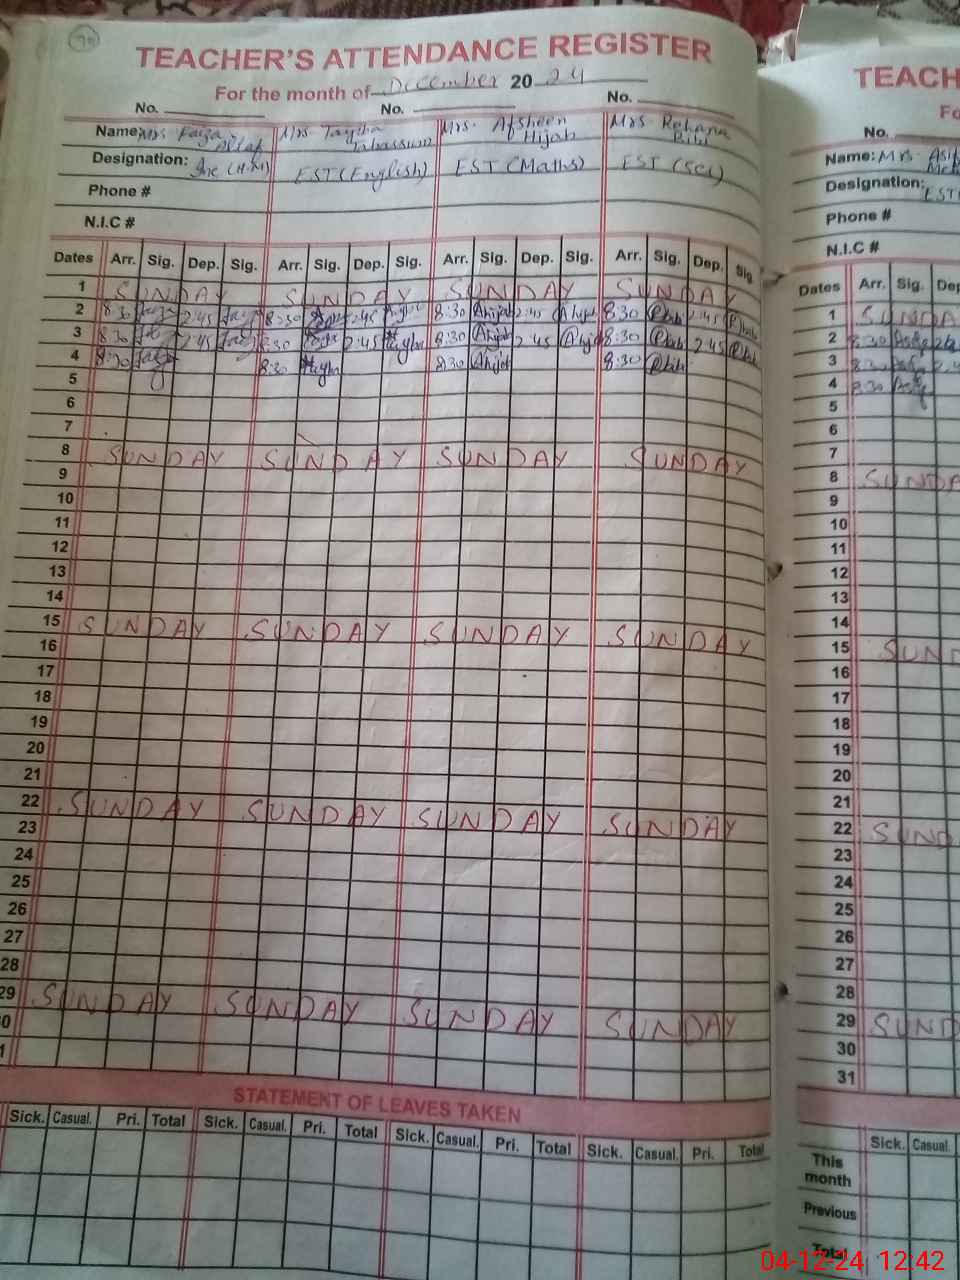 70
TEACHER'S ATTENDANCE REGISTER
For the month of December 2024
No. No. No.
Name: Mrs. Faiza Altaf Mrs. Tayiba Tabassum Mrs. Afsheen Hijab Mrs. Rehana Bibi
Designation: (H.M) EST (English) EST (Maths) EST (Sci)
Phone #
N.I.C #
Dates Arr. Sig. Dep. Sig. Arr. Sig. Dep. Sig. Arr. Sig. Dep. Sig. Arr. Sig. Dep. Sig.
1 SUNDAY SUNDAY SUNDAY SUNDAY
2 8:30 2:45 8:30 2:45 8:30 Ahijab 2:45 Ahijab 8:30 Rbibi 2:45 Rbibi
3 8:30 2:45 8:30 2:45 8:30 Ahijab 2:45 Ahijab 8:30 Rbibi 2:45 Rbibi
4 8:30 8:30 8:30 Ahijab 8:30 Rbibi
5
6
7
8 SUNDAY SUNDAY SUNDAY SUNDAY
9
10
11
12
13
14
15 SUNDAY SUNDAY SUNDAY SUNDAY
16
17
18
19
20
21
22 SUNDAY SUNDAY SUNDAY SUNDAY
23
24
25
26
27
28
29 SUNDAY SUNDAY SUNDAY SUNDAY
0
1
STATEMENT OF LEAVES TAKEN
Sick. Casual. Pri. Total Sick. Casual. Pri. Total Sick. Casual. Pri. Total Sick. Casual. Pri. Total
TEACH
Fo
No.
Name: Mrs. Asif
Designation: EST
Phone #
N.I.C #
Dates Arr. Sig. Dep
1 SUNDA
2 8:30 2:4
3 8:30 2:4
4 8:30
5
6
7
8 SUNDA
9
10
11
12
13
14
15 SUND
16
17
18
19
20
21
22 SUND
23
24
25
26
27
28
29 SUND
30
31
Sick. Casual.
This month
Previous
Total
04-12-24 12:42